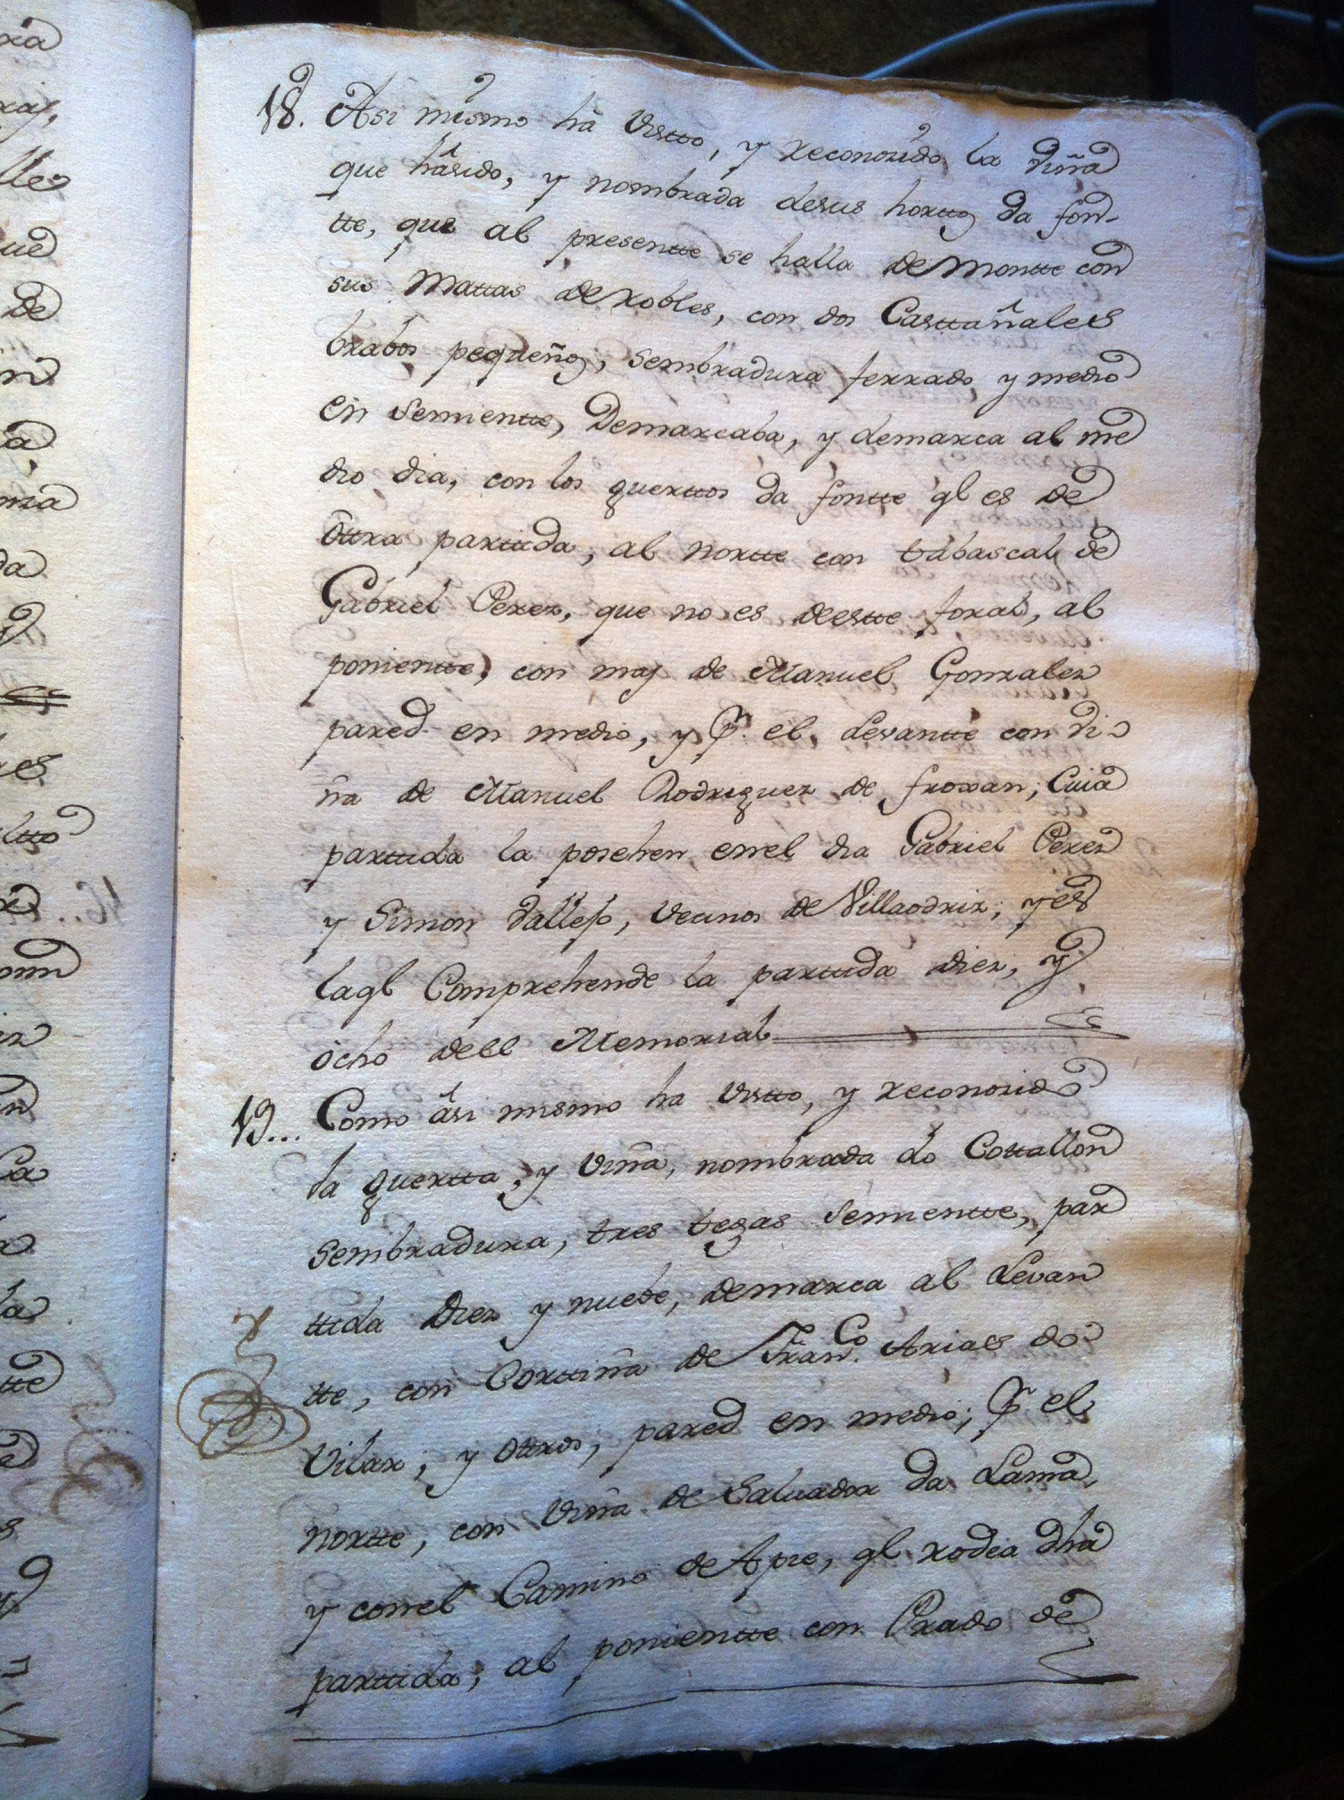 18. Asi mismo ha Vistto, y reconozido la viña
que há sido, y nombrada de sus horttos da fon-
tte, que al presentte se halla de Montte con
sus Mattas de robles, con dos Casttañales
brabos pequeños, sembradura ferrado y medio
en semientte, Demarcaba, y demarca al me
dio dia, con los guerttos da fontte ql es de
Ottra parttida, al nortte con tabascal de
Gabriel Perez, que no es destte foral, al
ponientte, con mas de Manuel Gonzalez
pared en medio, y Pr. el Levantte con vi-
ña de Manuel Rodriguez de froxan; Cuia
parttida la posehen en el dia Gabriel Perez
y Simon Vallejo, Vecinos de Villaodriz; y es
la ql Comprehende la parttida diez, y
ócho dell Memorial
19... Como ási mismo ha Vistto, y reconozido
la guertta, y Viña, nombrada do Cottallon
Sembradura, tres tegas semientte, par
ttida Diez y nuebe, demarca al Levan
tte, con Corttiña de Franco. Arias do
Vilar, y Ottros, pared en medio; Pr. el
nortte, con Viña de Salvador da Lama,
y con el Camino de Apie, ql rodea dha
parttida; al ponientte con Prado de